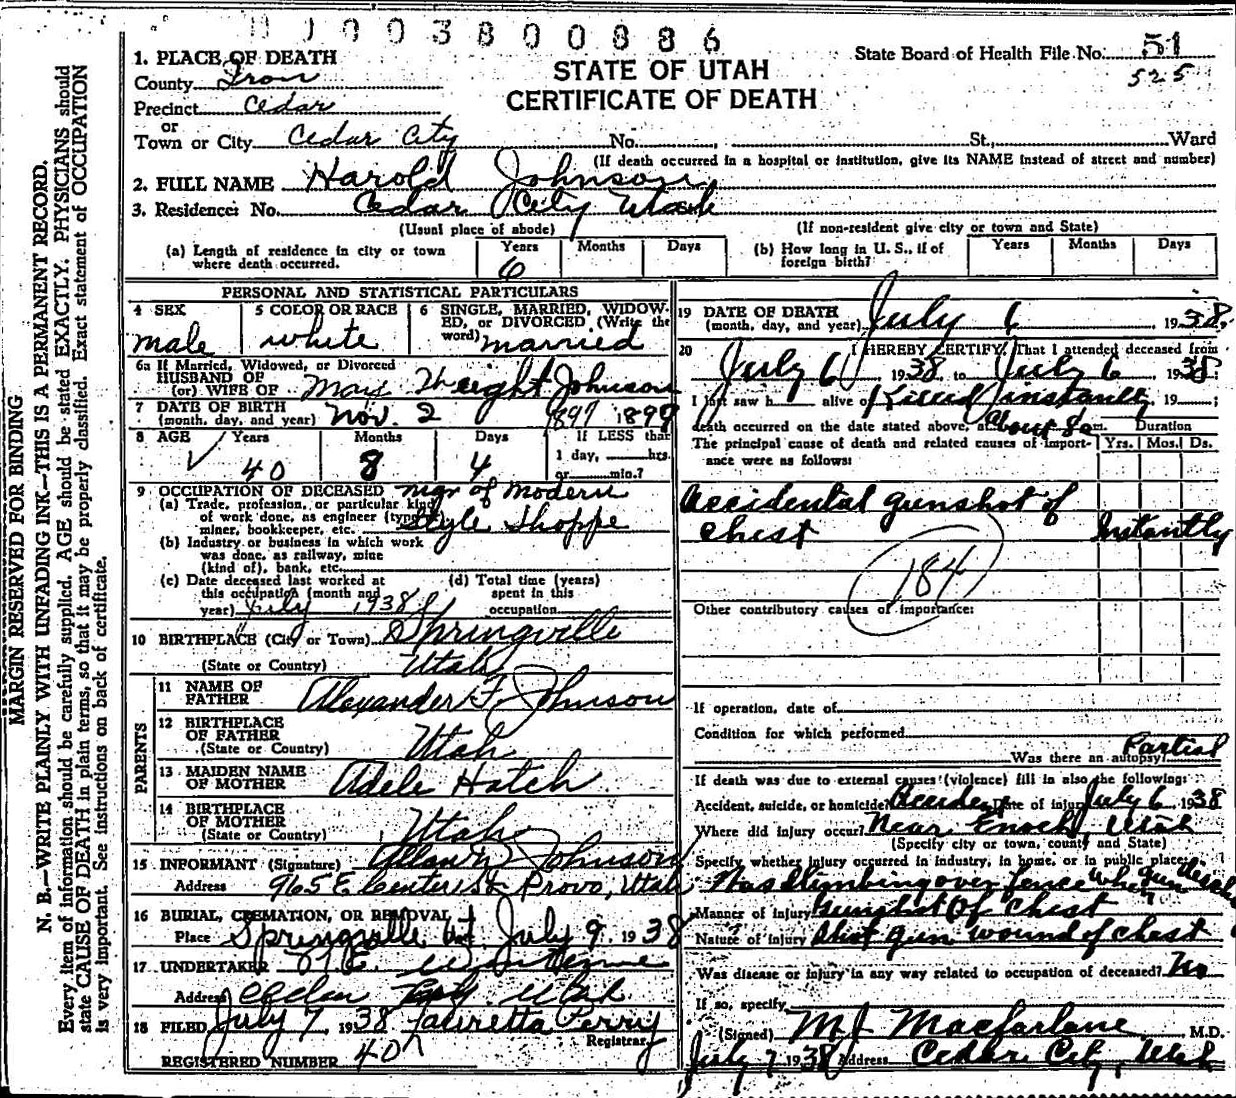 11003800886
State Board of Health File No. 51
525
STATE OF UTAH
CERTIFICATE OF DEATH
1. PLACE OF DEATH
County Iron
Precinct Cedar
or
Town or City Cedar City No. St., Ward
(If death occurred in a hospital or institution, give its NAME instead of street and number)
2. FULL NAME Harold Johnson
3. Residence: No. Cedar City Utah
(Usual place of abode) (If non-resident give city or town and State)
(a) Length of residence in city or town where death occurred. Years 6 Months Days
(b) How long in U. S., if of foreign birth? Years Months Days
PERSONAL AND STATISTICAL PARTICULARS
4 SEX male
5 COLOR OR RACE white
6 SINGLE, MARRIED, WIDOWED, or DIVORCED (Write the word) married
6a If Married, Widowed, or Divorced
HUSBAND OF
(or) WIFE OF May Johnson
7 DATE OF BIRTH
(month, day, and year) Nov. 2 1897 1899
8 AGE Years 40 Months 8 Days 4 If LESS than
1 day, hrs.
or min.?
9 OCCUPATION OF DECEASED mgr of Modern
(a) Trade, profession, or particular kind
of work done, as engineer (typist Style Shoppe
miner, bookkeeper, etc.
(b) Industry or business in which work
was done, as railway, mine
(kind of), bank, etc.
(c) Date deceased last worked at
this occupation (month and
year) July 1938
(d) Total time (years)
spent in this
occupation
10 BIRTHPLACE (City or Town) Springville
(State or Country) Utah
PARENTS
11 NAME OF
FATHER Alexander F. Johnson
12 BIRTHPLACE
OF FATHER
(State or Country) Utah
13 MAIDEN NAME
OF MOTHER Adele Hatch
14 BIRTHPLACE
OF MOTHER
(State or Country) Utah
15 INFORMANT (Signature) Johnson
Address 965 E. Center St Provo, Utah
16 BURIAL, CREMATION, OR REMOVAL
Place Springville Ut. July 9 1938
17 UNDERTAKER
Address Cedar City, Utah
18 FILED July 7, 1938 Lauretta Perry
Registrar
REGISTERED NUMBER 40
19 DATE OF DEATH
(month, day, and year) July 6, 1938
20 I HEREBY CERTIFY, That I attended deceased from
July 6 1938, to July 6, 1938;
I last saw h alive on Killed instantly, 19 ;
death occurred on the date stated above, at about 8 a m.
The principal cause of death and related causes of importance were as follows: Duration Yrs. Mos. Ds.
Accidental gunshot of
chest Instantly
184
Other contributory causes of importance:
If operation, date of
Condition for which performed
Was there an autopsy? Partial
If death was due to external causes (violence) fill in also the following:
Accident, suicide, or homicide? Accident Date of injury July 6 1938
Where did injury occur? Near Enoch, Utah
(Specify city or town, county and State)
Specify whether injury occurred in industry, in home, or in public place:
Was climbing over fence when gun
Manner of injury Gunshot of chest
Nature of injury Shot gun wound of chest
Was disease or injury in any way related to occupation of deceased? No
If so, specify
(Signed) M J Macfarlane M.D.
July 7, 1938 Address Cedar City, Utah
MARGIN RESERVED FOR BINDING
N. B.—WRITE PLAINLY WITH UNFADING INK—THIS IS A PERMANENT RECORD.
Every item of information should be carefully supplied. AGE should be stated EXACTLY. PHYSICIANS should
state CAUSE OF DEATH in plain terms, so that it may be properly classified. Exact statement of OCCUPATION
is very important. See instructions on back of certificate.